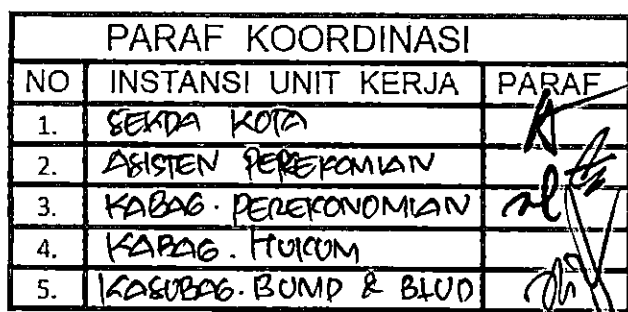 PARAF KOORDINASI
NO INSTANSI UNIT KERJA PARAF
1. SEKDA KOTA
2. ASISTEN PEREKOMIAN
3. KABAG. PEREKONOMIAN
4. KABAG. HUKUM
5. KASUBAG. BUMD & BLUD